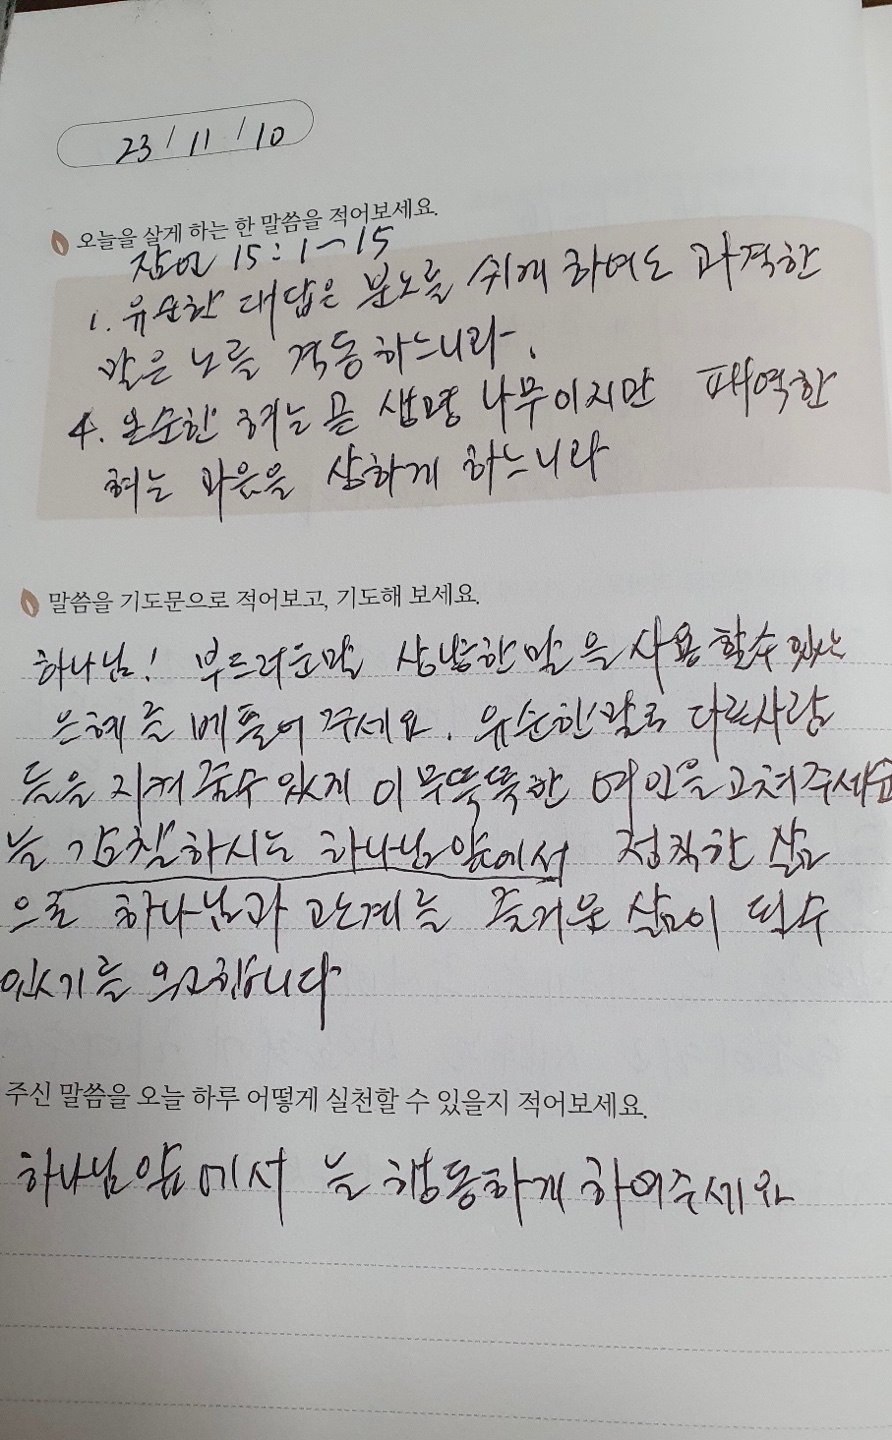 23 / 11 / 10
오늘을 살게 하는 한 말씀을 적어보세요.
잠언 15:1-15
1. 유순한 대답은 분노를 쉬게 하여도 과격한
말은 노를 격동하느니라.
4. 온순한 혀는 곧 생명 나무이지만 패역한
혀는 마음을 상하게 하느니라
말씀을 기도문으로 적어보고, 기도해 보세요.
하나님! 부드러운말 상냥한말을 사용할수 있는
은혜를 베풀어 주세요. 유순한 말로 다른사람
들을 지켜 줄수 있게 이 무뚝뚝한 여인을 고쳐주세요
늘 감찰하시는 하나님앞에서 정직한 삶
으로 하나님과 관계를 즐거운 삶이 될수
있기를 원합니다
주신 말씀을 오늘 하루 어떻게 실천할 수 있을지 적어보세요.
하나님앞에서 늘 행동하게 하여주세요